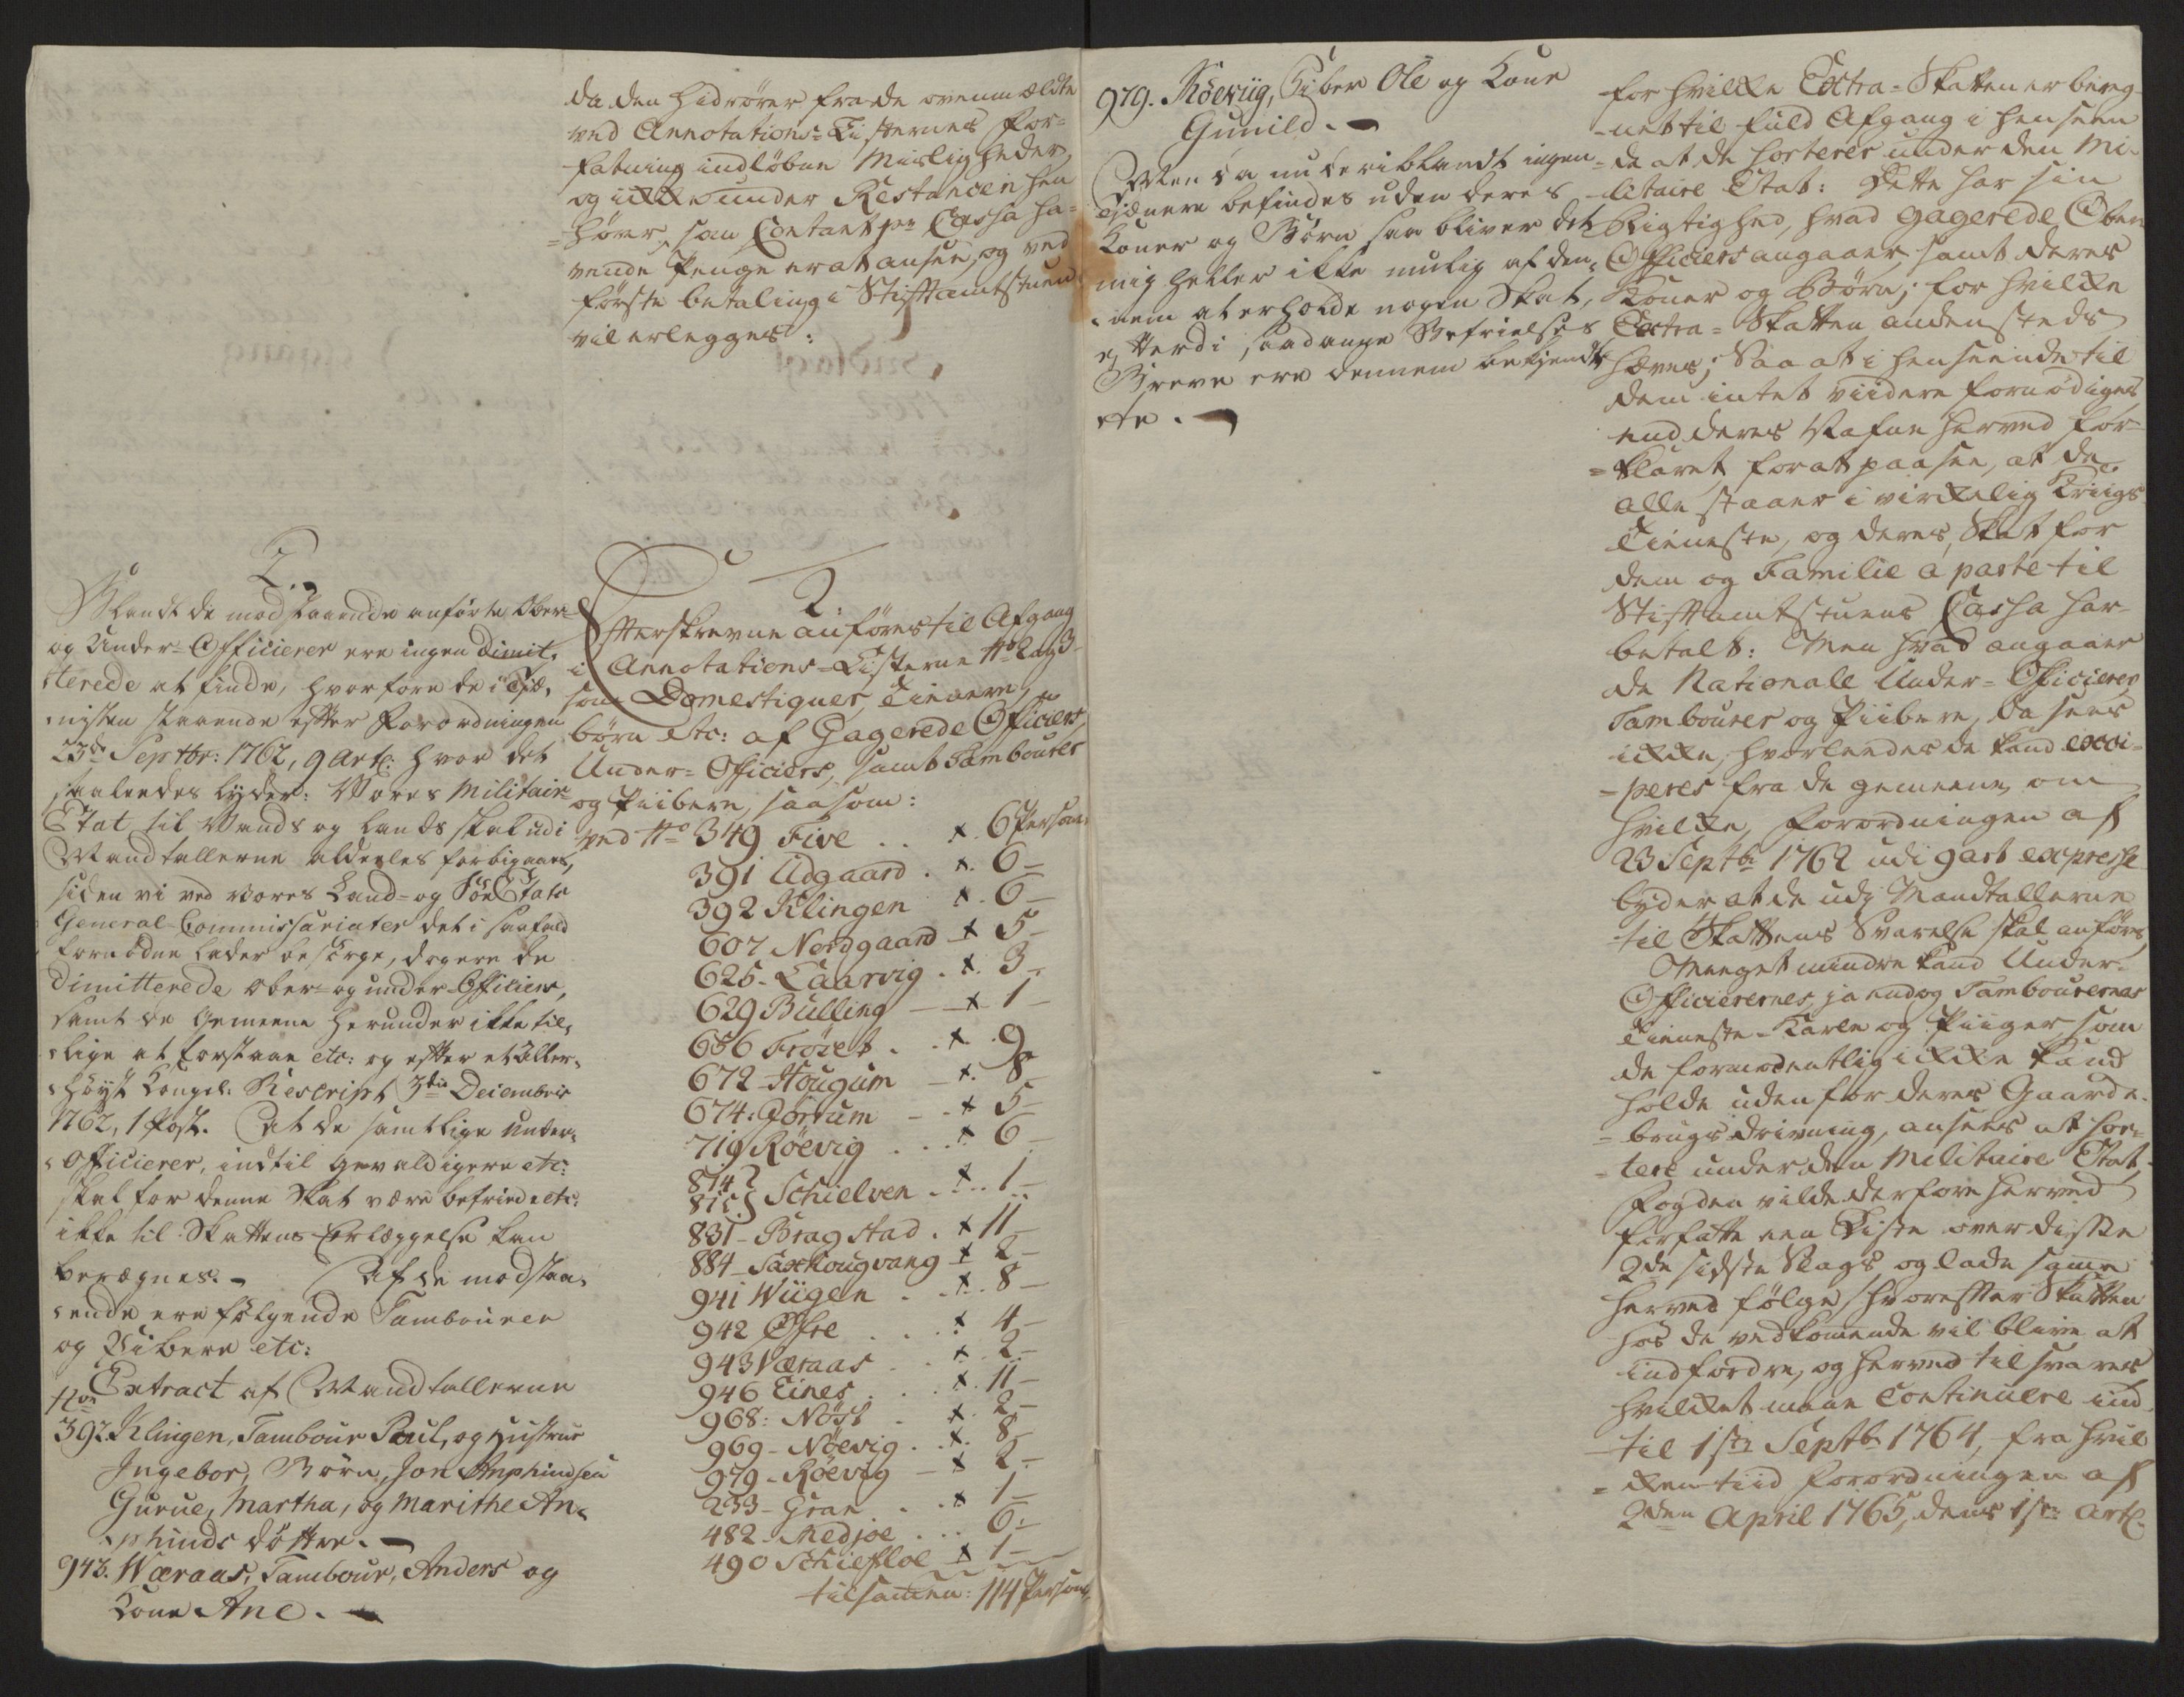 da den hidrører fra de ovenmældte
ved Annotations-Listernes for-
fatning indløbne Misligheder,
og ikke under Restancen hen
-hører, som Contant pr Cassa ha-
vende Penge er at ansee, og ved
første betaling i Stiftamtstuen
vil erlegges:
2.
Blandt de modstaaende anførte Ober-
og Under-Officierer ere ingen Dimit-
terede at finde, hvorfore de i Tie-
nisten staaende efter Forordningen
23de Septbr: 1762, 9 Art: hvor det
saaleedes lyder: Vores Militair
Etat til Vands og Lands skal udi
Mandtallerne aldeeles forbigaaes,
siden vi ved vores Land- og Søe Etats
General-Commissariater det i saafald
fornødne lader besørge, dog ere de
Dimitterede Ober- og under-Officiers,
samt de Gemeene herunder ikke til-
lige at forstaae etc: og efter et Aller-
høyst Kongel: Rescript 3die Decembris
1762, 1 Post. At de samtlige Under-
Officierer, indtil Gevaldigere etc:
skal for denne Skat være befriede etc:
ikke til Skattens Erlæggelse kan
beregnes. - Af de modstaa-
ende ere følgende Tambourer
og Pibere etc:
Extract af Mandtallerne
No
392. Klingen, Tambour Poul, og Hustrue
Ingebor, Børn, Jon Anphindsen
Gurue, Martha, og Marithe An-
phinds døttre. -
943. Wæraas, Tambour, Anders og
Kone Ane. -
2.
Efterskrevne anføres til Afgang
i Annotations-Listerne No 2 og 3
som Domestiquer, Tienere,
børn etc: af Gagerede Officiers,
Under-Officiers, samt Tambourer
og Piibere, saasom:
ved No 349 Five . . x. 6 Persons
391 Udgaard . x. 6 -
392 Klingen x. 6 -
607 Nordgaard x 5 -
625 - Laarvig . x. 3 -
629 Bulling - x 1 -
656 Frøset . . x. 9
672 - Hougum - x. 8
674: Gørtum - - x 5 -
719 Røevig . . . x 6 -
814
815 } Schielven . x.. 1 -
831 - Bragstad . x 11 -
884 - Saxhougvang x 2 -
941 Wiigen . . x.. 8 -
942 Øfre . . . x 4 -
943 Væraas . . x 2 -
946 Eines . . . x. 11 -
968: Nøst . x. 2 -
969 - Nøevig . . x. 8 -
979 - Røevig - x 2 -
233 - Gran . . x 1 -
482 - Medjoe . . . 6 -
490 Schiefloe x 1 -
tilsamen: 114 Persons
979. Röeviig, Piber Ole og Kone
Gunild. -
Men da nu deriblandt ingen
Tienere befindes uden deres
Koner og Børn saa bliver det
mig heller ikke mulig af den-
nem at erholde nogen Skat,
efterdi saadanne Befrielses
Breve ere dennem bekiendt
etc. -
for hvilke Extra-Skatten er bereg-
-net til fuld Afgang i henseen
-de at de sorterer under den Mi-
-litaire Etat: Dette har sin
Rigtighed, hvad Gagerede Ober
Officiers angaaer, samt deres
Koner og Børn; for hvilke
Extra-Skatten andensteds
hæves; Saa at i henseende til
dem intet viidere fornødiges
end deres Nafne herved for-
=klaret, for at paasee, at de
alle staaer i virkelig Kriigs
Tieneste, og deres Skat for
dem og Familie a parte til
Stiftamtstuens Cassa har
betalt: Men hvad angaaer
de Nationale Under-Officierer
Tambourer og Piibere, da sees
ikke, hvorleedes de kand exci-
-peres fra de gemeene, om
hvilke, Forordningen af
23 Septbr 1762 udi 9 art expresse
lyder at de udj Mandtallerne
til Skattens Svarelse skal anføres,
Meeget mindre kand Under-
Officierernes, ja endog Tambourernes
Tieneste-Karle og Piiger, som
de formodentlig ikke kand
holde uden for deres Gaards-
-brugs drivning, ansees at sor-
-tere under den Militaire Etat,
Fogden vilde derfore herved
forfatte een Liste over disse
2de sidste Slags og lade samme
herved følge, hvorefter Skatten
hos de vedkommende vil blive at
indfordre, og herved tilsvares
hvilket maae Continuere ind-
til 1ste Septbr 1764, fra hvil
=ken tiid Forordningen af
2den April 1765, dens 1ste Art: